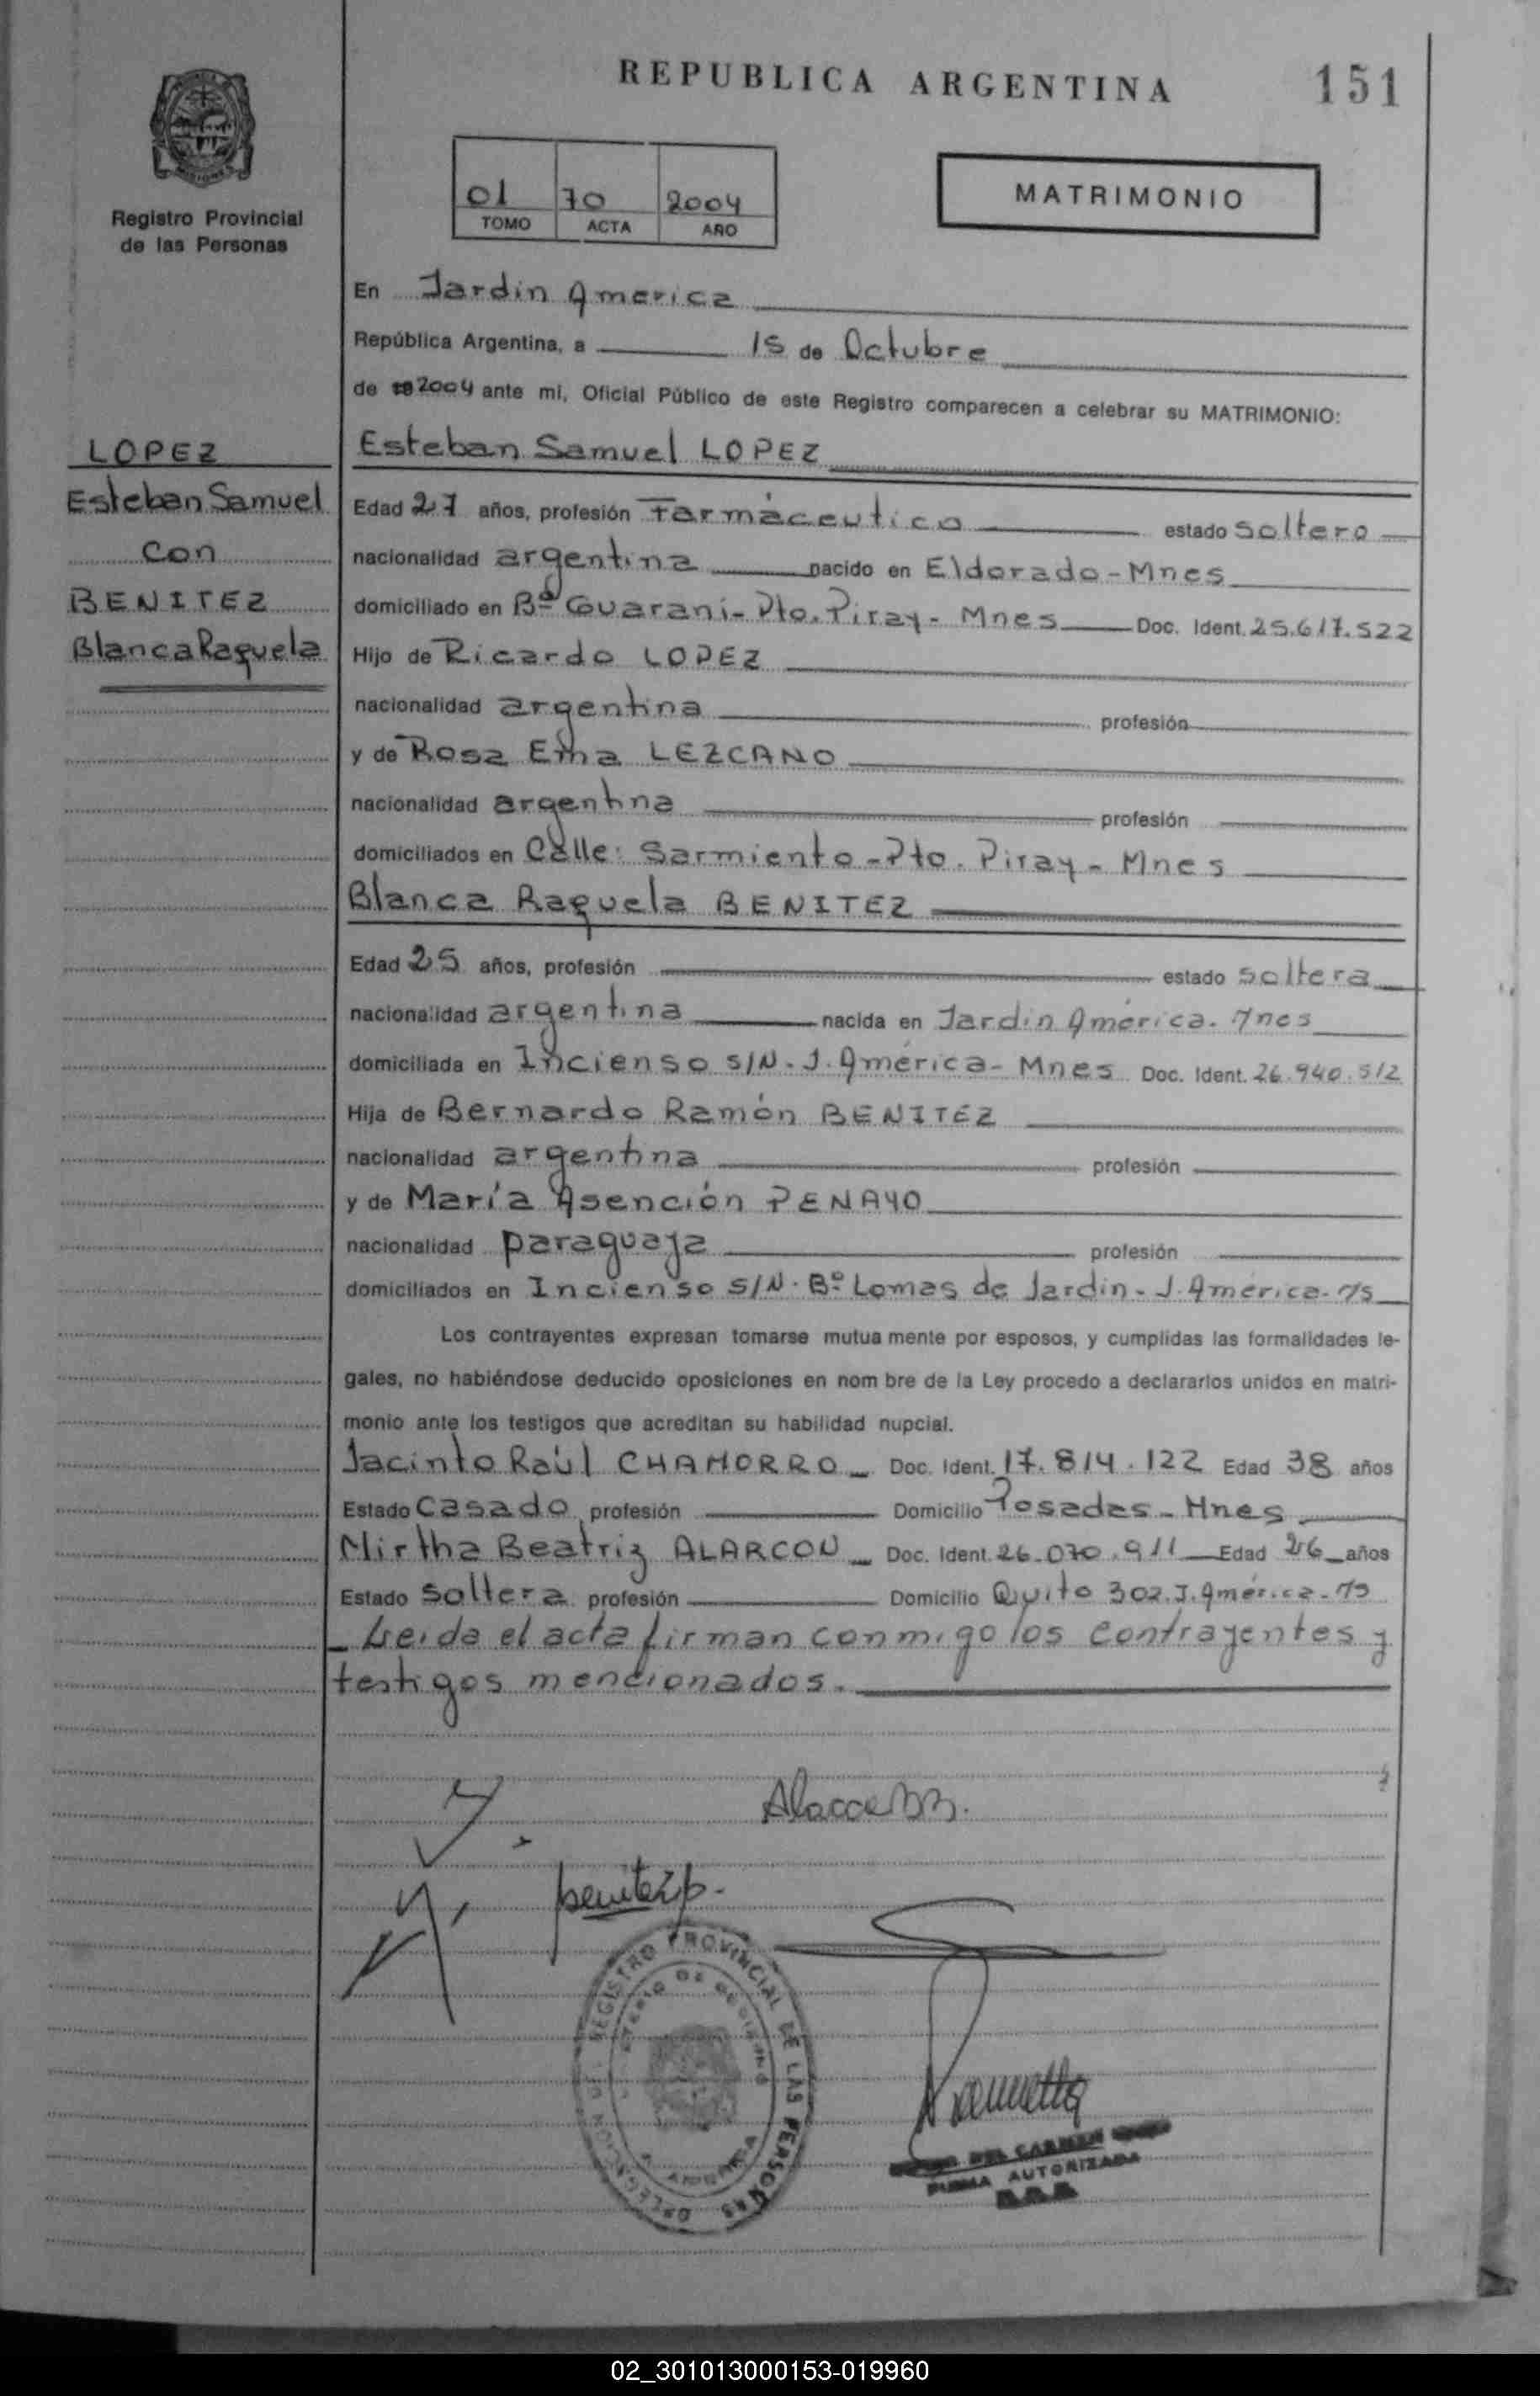 REPUBLICA ARGENTINA
151
MISIONES
Registro Provincial
de las Personas
01 70 2004
TOMO ACTA AÑO
MATRIMONIO
En Jardin America
República Argentina, a 15 de Octubre
de 19 2004 ante mi, Oficial Público de este Registro comparecen a celebrar su MATRIMONIO:
LOPEZ
Esteban Samuel
con
BENITEZ
Blanca Raquela
Esteban Samuel LOPEZ
Edad 27 años, profesión Farmáceutico estado soltero
nacionalidad argentina nacido en Eldorado-Mnes
domiciliado en Bº Guarani-Pto. Piray- Mnes Doc. Ident. 25.617.522
Hijo de Ricardo LOPEZ
nacionalidad argentina profesión
y de Rosa Ema LEZCANO
nacionalidad argentina profesión
domiciliados en Calle: Sarmiento-Pto. Piray- Mnes
Blanca Raquela BENITEZ
Edad 25 años, profesión estado soltera
nacionalidad argentina nacida en Jardin América. Mnes
domiciliada en Incienso S/N. J. América- Mnes Doc. Ident. 26.940.512
Hija de Bernardo Ramón BENITEZ
nacionalidad argentina profesión
y de María Asención PENAYO
nacionalidad paraguaya profesión
domiciliados en Incienso S/N. Bº Lomas de Jardin- J. América-Ms
Los contrayentes expresan tomarse mutua mente por esposos, y cumplidas las formalidades le-
gales, no habiéndose deducido oposiciones en nom bre de la Ley procedo a declararlos unidos en matri-
monio ante los testigos que acreditan su habilidad nupcial.
Jacinto Raúl CHAMORRO Doc. Ident. 17.814.122 Edad 38 años
Estado Casado profesión Domicilio Posadas- Mnes
Mirtha Beatriz ALARCON Doc. Ident. 26.070.911 Edad 26 años
Estado Soltera profesión Domicilio Quito 302. J. América-Ms
Leida el acta firman conmigo los contrayentes y
testigos mencionados.
benitez
REGISTRO PROVINCIAL DE LAS PERSONAS
DEL CARMEN
FIRMA AUTORIZADA
02_301013000153-019960